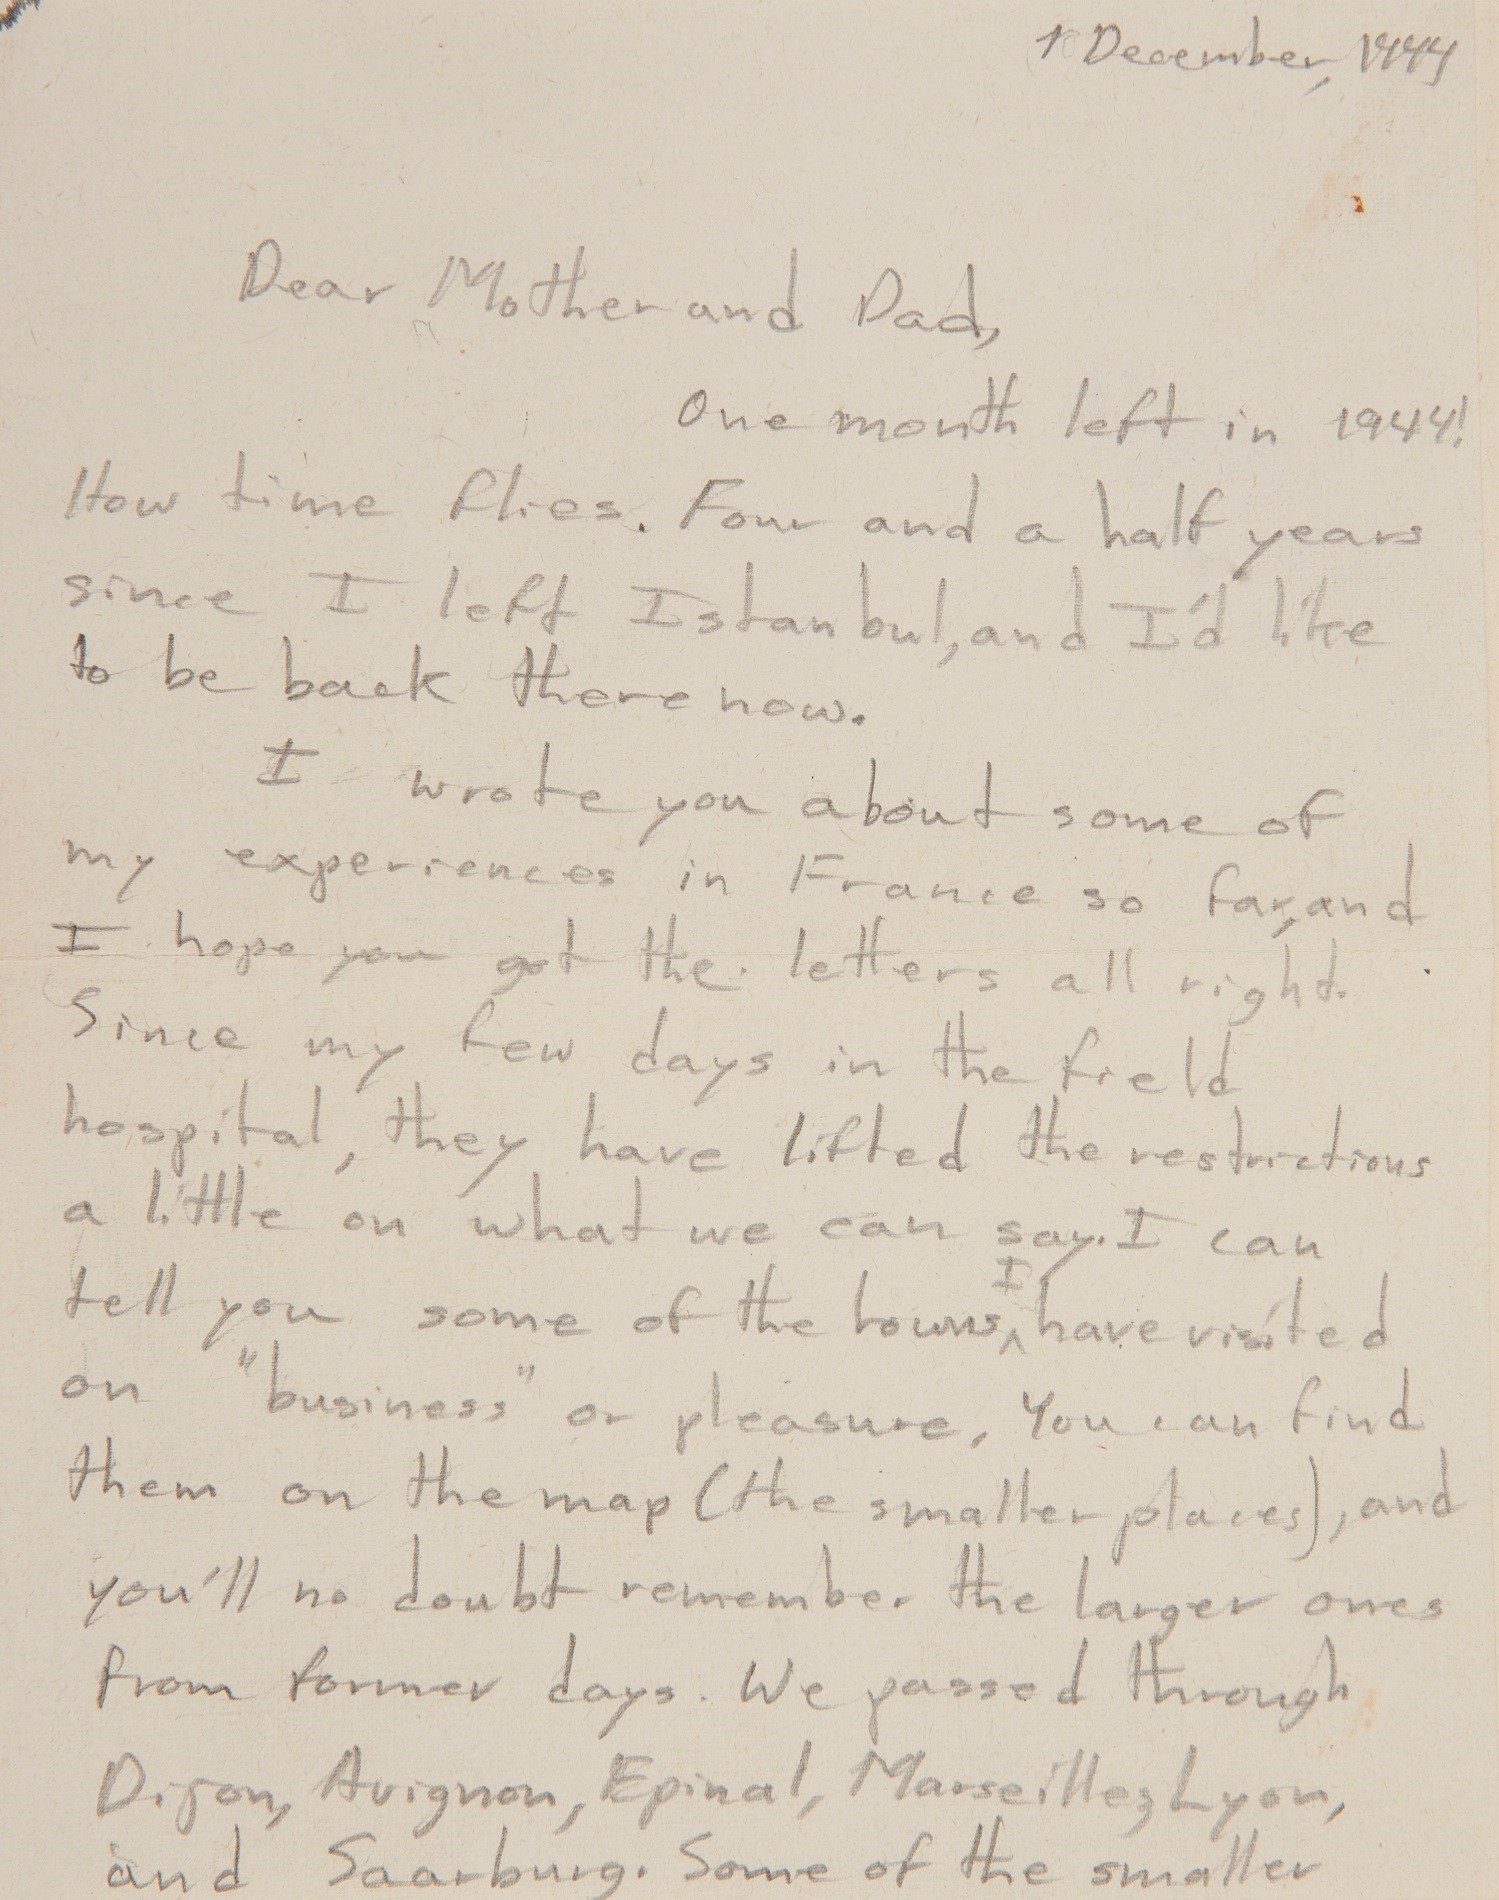 1 December, 1944
Dear Mother and Dad,
One month left in 1944!
How time flies. Four and a half years
since I left Istanbul, and I'd like
to be back there now.
I wrote you about some of
my experiences in France so far, and
I hope you got the letters all right.
Since my few days in the field
hospital, they have lifted the restrictions
a little on what we can say. I can
tell you some of the towns I have visited
on "business" or pleasure. You can find
them on the map (the smaller places), and
you'll no doubt remember the larger ones
from former days. We passed through
Dijon, Avignon, Epinal, Marseilles, Lyon,
and Saarburg. Some of the smaller